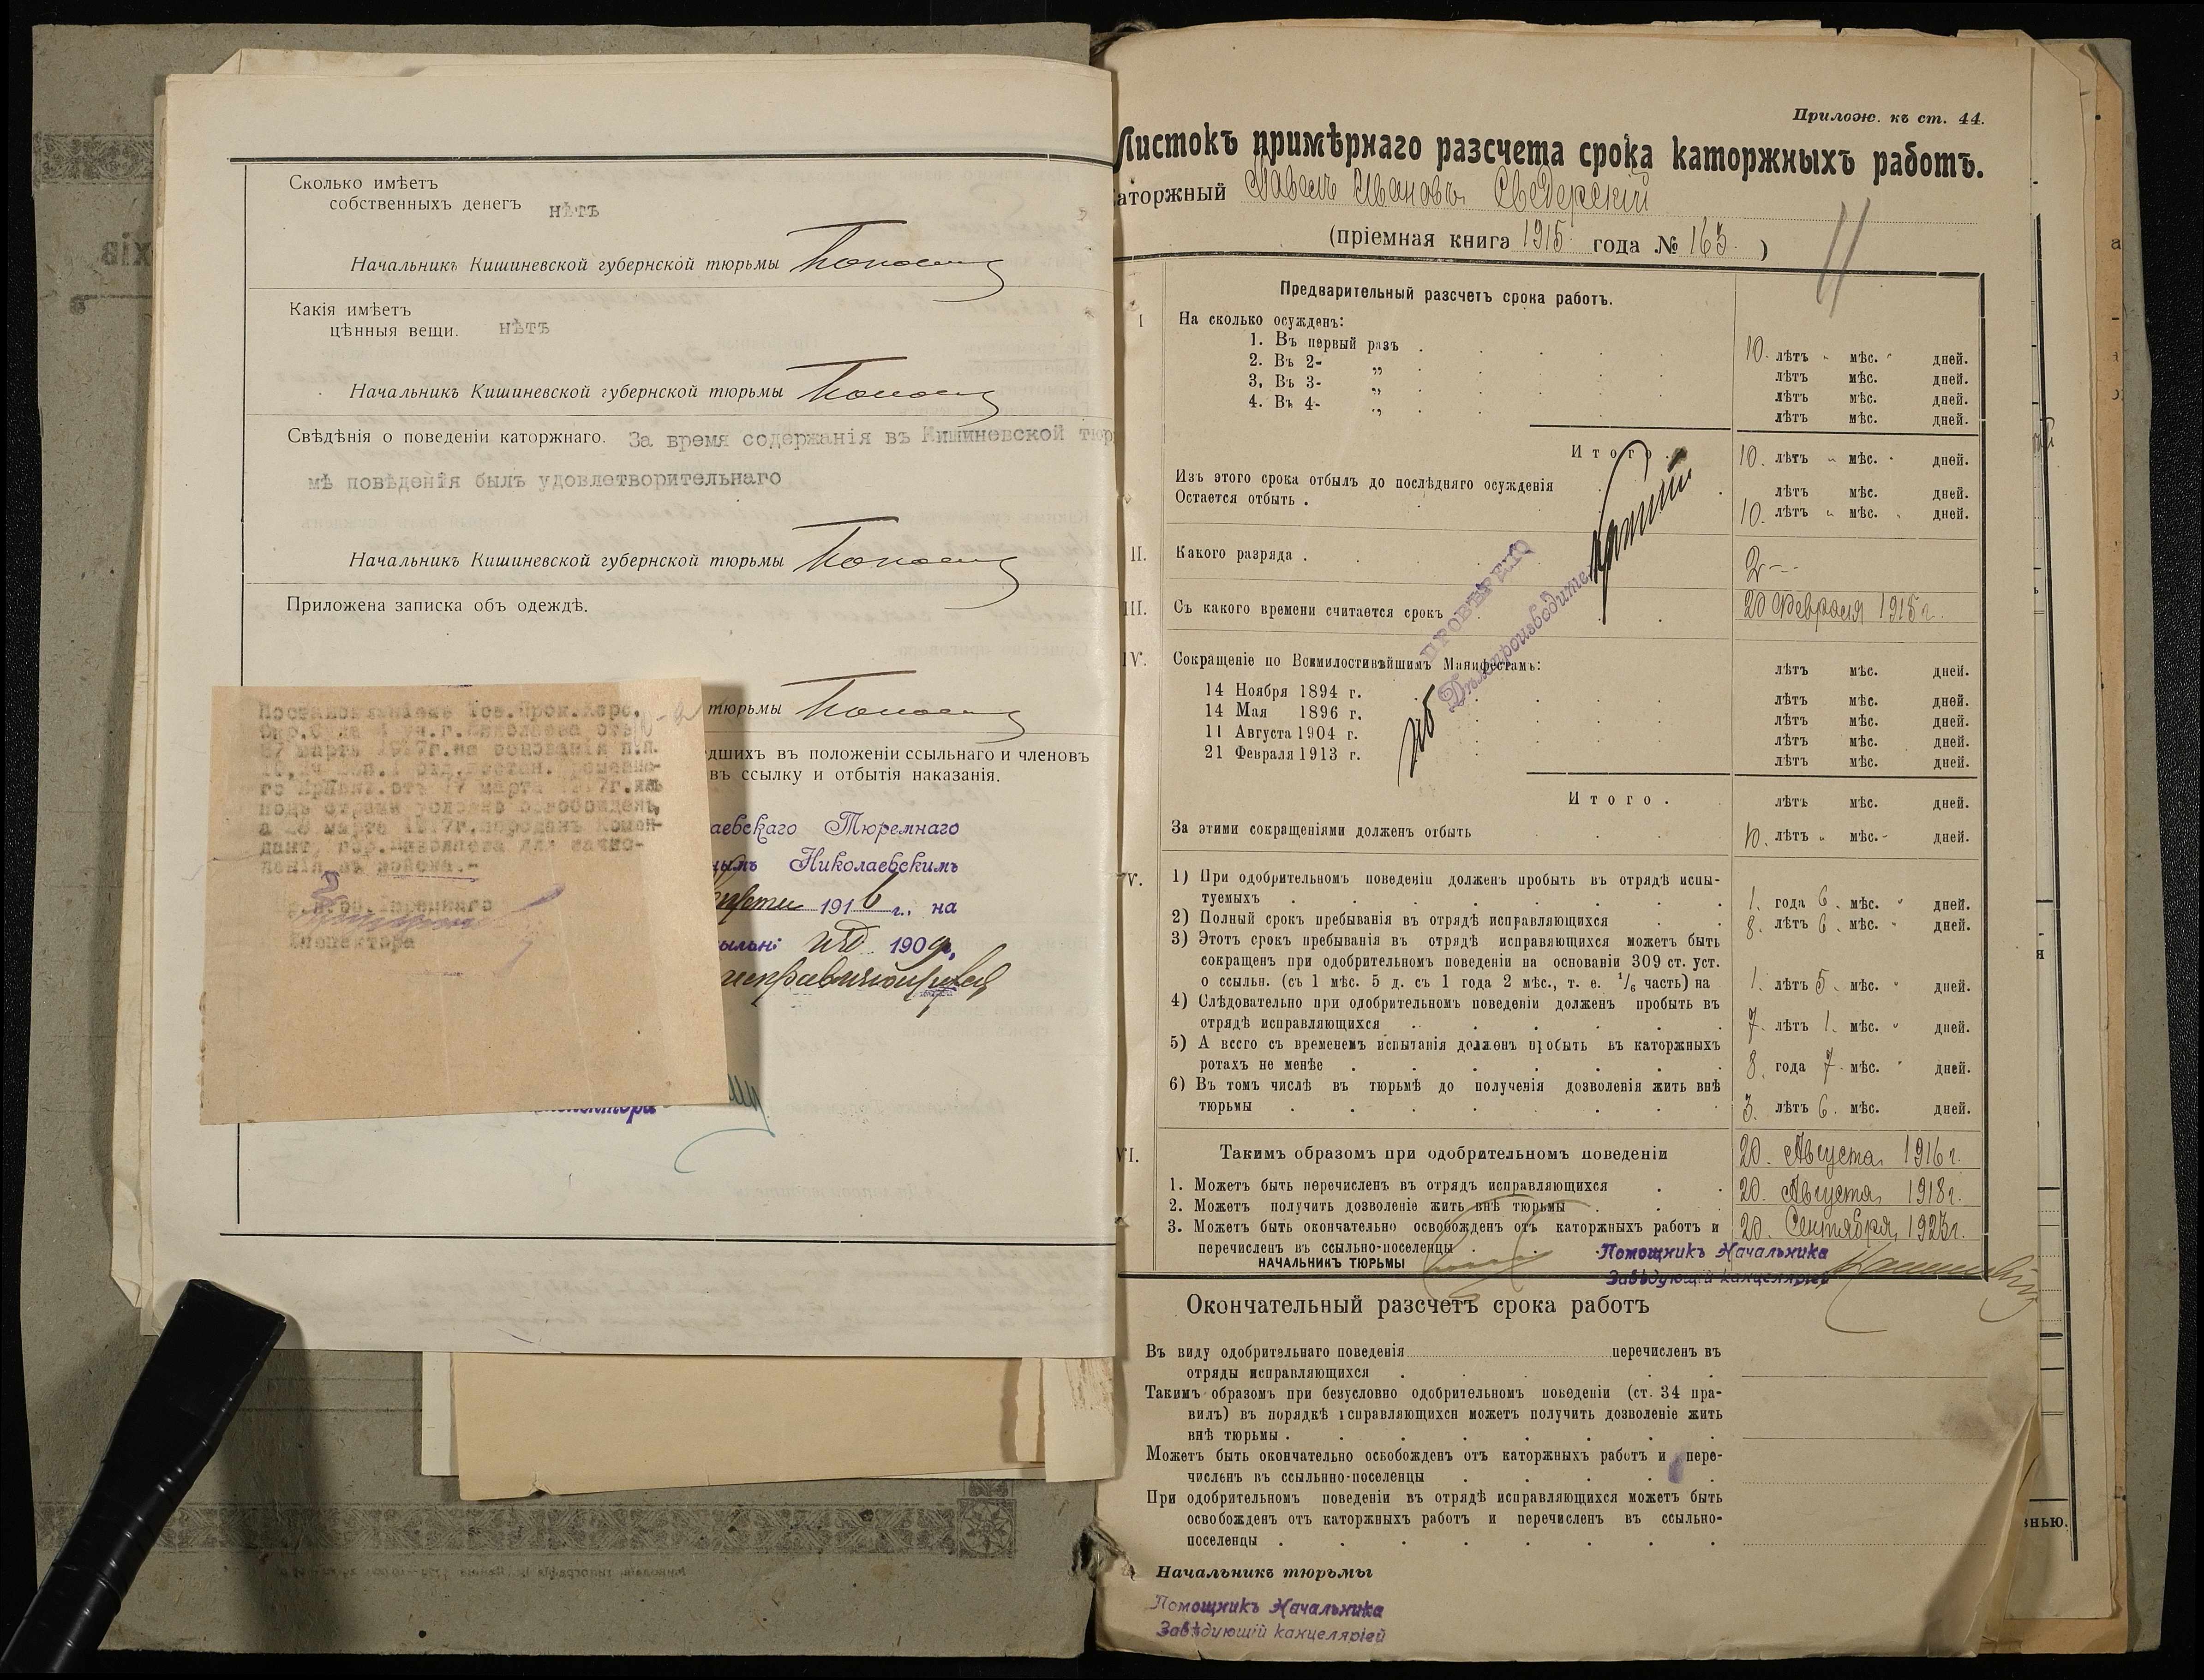 Сколько имѣетъ
собственныхъ денегъ нѣтъ
Начальникъ Кишиневской губернской тюрьмы
Какія имѣетъ
цѣнныя вещи. нѣтъ
Начальникъ Кишиневской губернской тюрьмы
Свѣдѣнія о поведеніи каторжнаго. За время содержанія въ Кишиневской тюр
мѣ поведенія былъ удовлетворительнаго
Начальникъ Кишиневской губернской тюрьмы
Приложена записка объ одеждѣ.
тюрьмы
дшихъ въ положеніи ссыльнаго и членовъ
въ ссылку и отбытія наказанія.
Постановленіемъ Тов.Прок.Херс.
Окр.Суда уч.г.Николаева отъ
27 марта 1917г.на основаніи п.п.
го Правит.отъ 17 марта 1917г.изъ
подъ стражи условно освобожденъ,
а 28 марта 1917г.переданъ Комен-
дант. гор.Николаева для зачис-
ленія въ войска.-
Инспектора
аевскаго Тюремнаго
нымъ Николаевскимъ
1916 г., на
1909
Прилож. къ ст. 44.
Листокъ примѣрнаго разсчета срока каторжныхъ работъ.
аторжный Павелъ Ивановъ Сведерскій
(пріемная книга 1915 года № 163 )
11
Предварительный разсчетъ срока работъ.
I На сколько осужденъ:
1. Въ первый разъ 10. лѣтъ „ мѣс. „ дней.
2. Въ 2- „ лѣтъ мѣс. дней.
3, Въ 3- „ лѣтъ мѣс. дней.
4. Въ 4- „ лѣтъ мѣс. дней.
Итого. 10. лѣтъ „ мѣс. „ дней.
Изъ этого срока отбылъ до послѣдняго осужденія лѣтъ мѣс. дней.
Остается отбыть . 10. лѣтъ „ мѣс. „ дней.
II. Какого разряда . 2--
III. Съ какого времени считается срокъ 20 Февраля 1915 г.
ПРОВѢРЕНО
Дѣлопроизводитель
IV. Сокращеніе по Всемилостивѣйшимъ Манифестамъ: лѣтъ мѣс. дней.
14 Ноября 1894 г. лѣтъ мѣс. дней.
14 Мая 1896 г. лѣтъ мѣс. дней.
11 Августа 1904 г. лѣтъ мѣс. дней.
21 Февраля 1913 г. лѣтъ мѣс. дней.
Итого. лѣтъ мѣс. дней.
За этими сокращеніями долженъ отбыть 10. лѣтъ „ мѣс. „ дней.
V. 1) При одобрительномъ поведеніи долженъ пробыть въ отрядѣ испы-
туемыхъ 1. года 6. мѣс. „ дней.
2) Полный срокъ пребыванія въ отрядѣ исправляющихся 8. лѣтъ 6. мѣс. „ дней.
3) Этотъ срокъ пребыванія въ отрядѣ исправляющихся можетъ быть
сокращенъ при одобрительномъ поведеніи на основаніи 309 ст. уст.
о ссыльн. (съ 1 мѣс. 5 д. съ 1 года 2 мѣс., т. е. 1/6 часть) на 1. лѣтъ 5. мѣс. „ дней.
4) Слѣдовательно при одобрительномъ поведеніи долженъ пробыть въ
отрядѣ исправляющихся 7. лѣтъ 1. мѣс. „ дней.
5) А всего съ временемъ испытанія долженъ пробыть въ каторжныхъ
ротахъ не менѣе 8. года 7. мѣс. „ дней.
6) Въ томъ числѣ въ тюрьмѣ до полученія дозволенія жить внѣ
тюрьмы 3. лѣтъ 6. мѣс. дней.
VI. Такимъ образомъ при одобрительномъ поведеніи 20. Августа 1916 г.
1. Можетъ быть перечисленъ въ отрядъ исправляющихся 20. Августа 1918 г.
2. Можетъ получить дозволеніе жить внѣ тюрьмы
3. Можетъ быть окончательно освобожденъ отъ каторжныхъ работъ и 20. Сентября 1923 г.
перечисленъ въ ссыльно-поселенцы
Помощникъ Начальника
НАЧАЛЬНИКЪ ТЮРЬМЫ
Завѣдующій канцеляріей
Окончательный разсчетъ срока работъ
Въ виду одобрительнаго поведенія перечисленъ въ
отряды исправляющихся
Такимъ образомъ при безусловно одобрительномъ поведеніи (ст. 34 пра-
вилъ) въ порядкѣ исправляющихся можетъ получить дозволеніе жить
внѣ тюрьмы .
Можетъ быть окончательно освобожденъ отъ каторжныхъ работъ и пере-
численъ въ ссыльнно-поселенцы
При одобрительномъ поведеніи въ отрядѣ исправляющихся можетъ быть
освобожденъ отъ каторжныхъ работъ и перечисленъ въ ссыльно-
поселенцы .
Начальникъ тюрьмы
Помощникъ Начальника
Завѣдующій канцеляріей